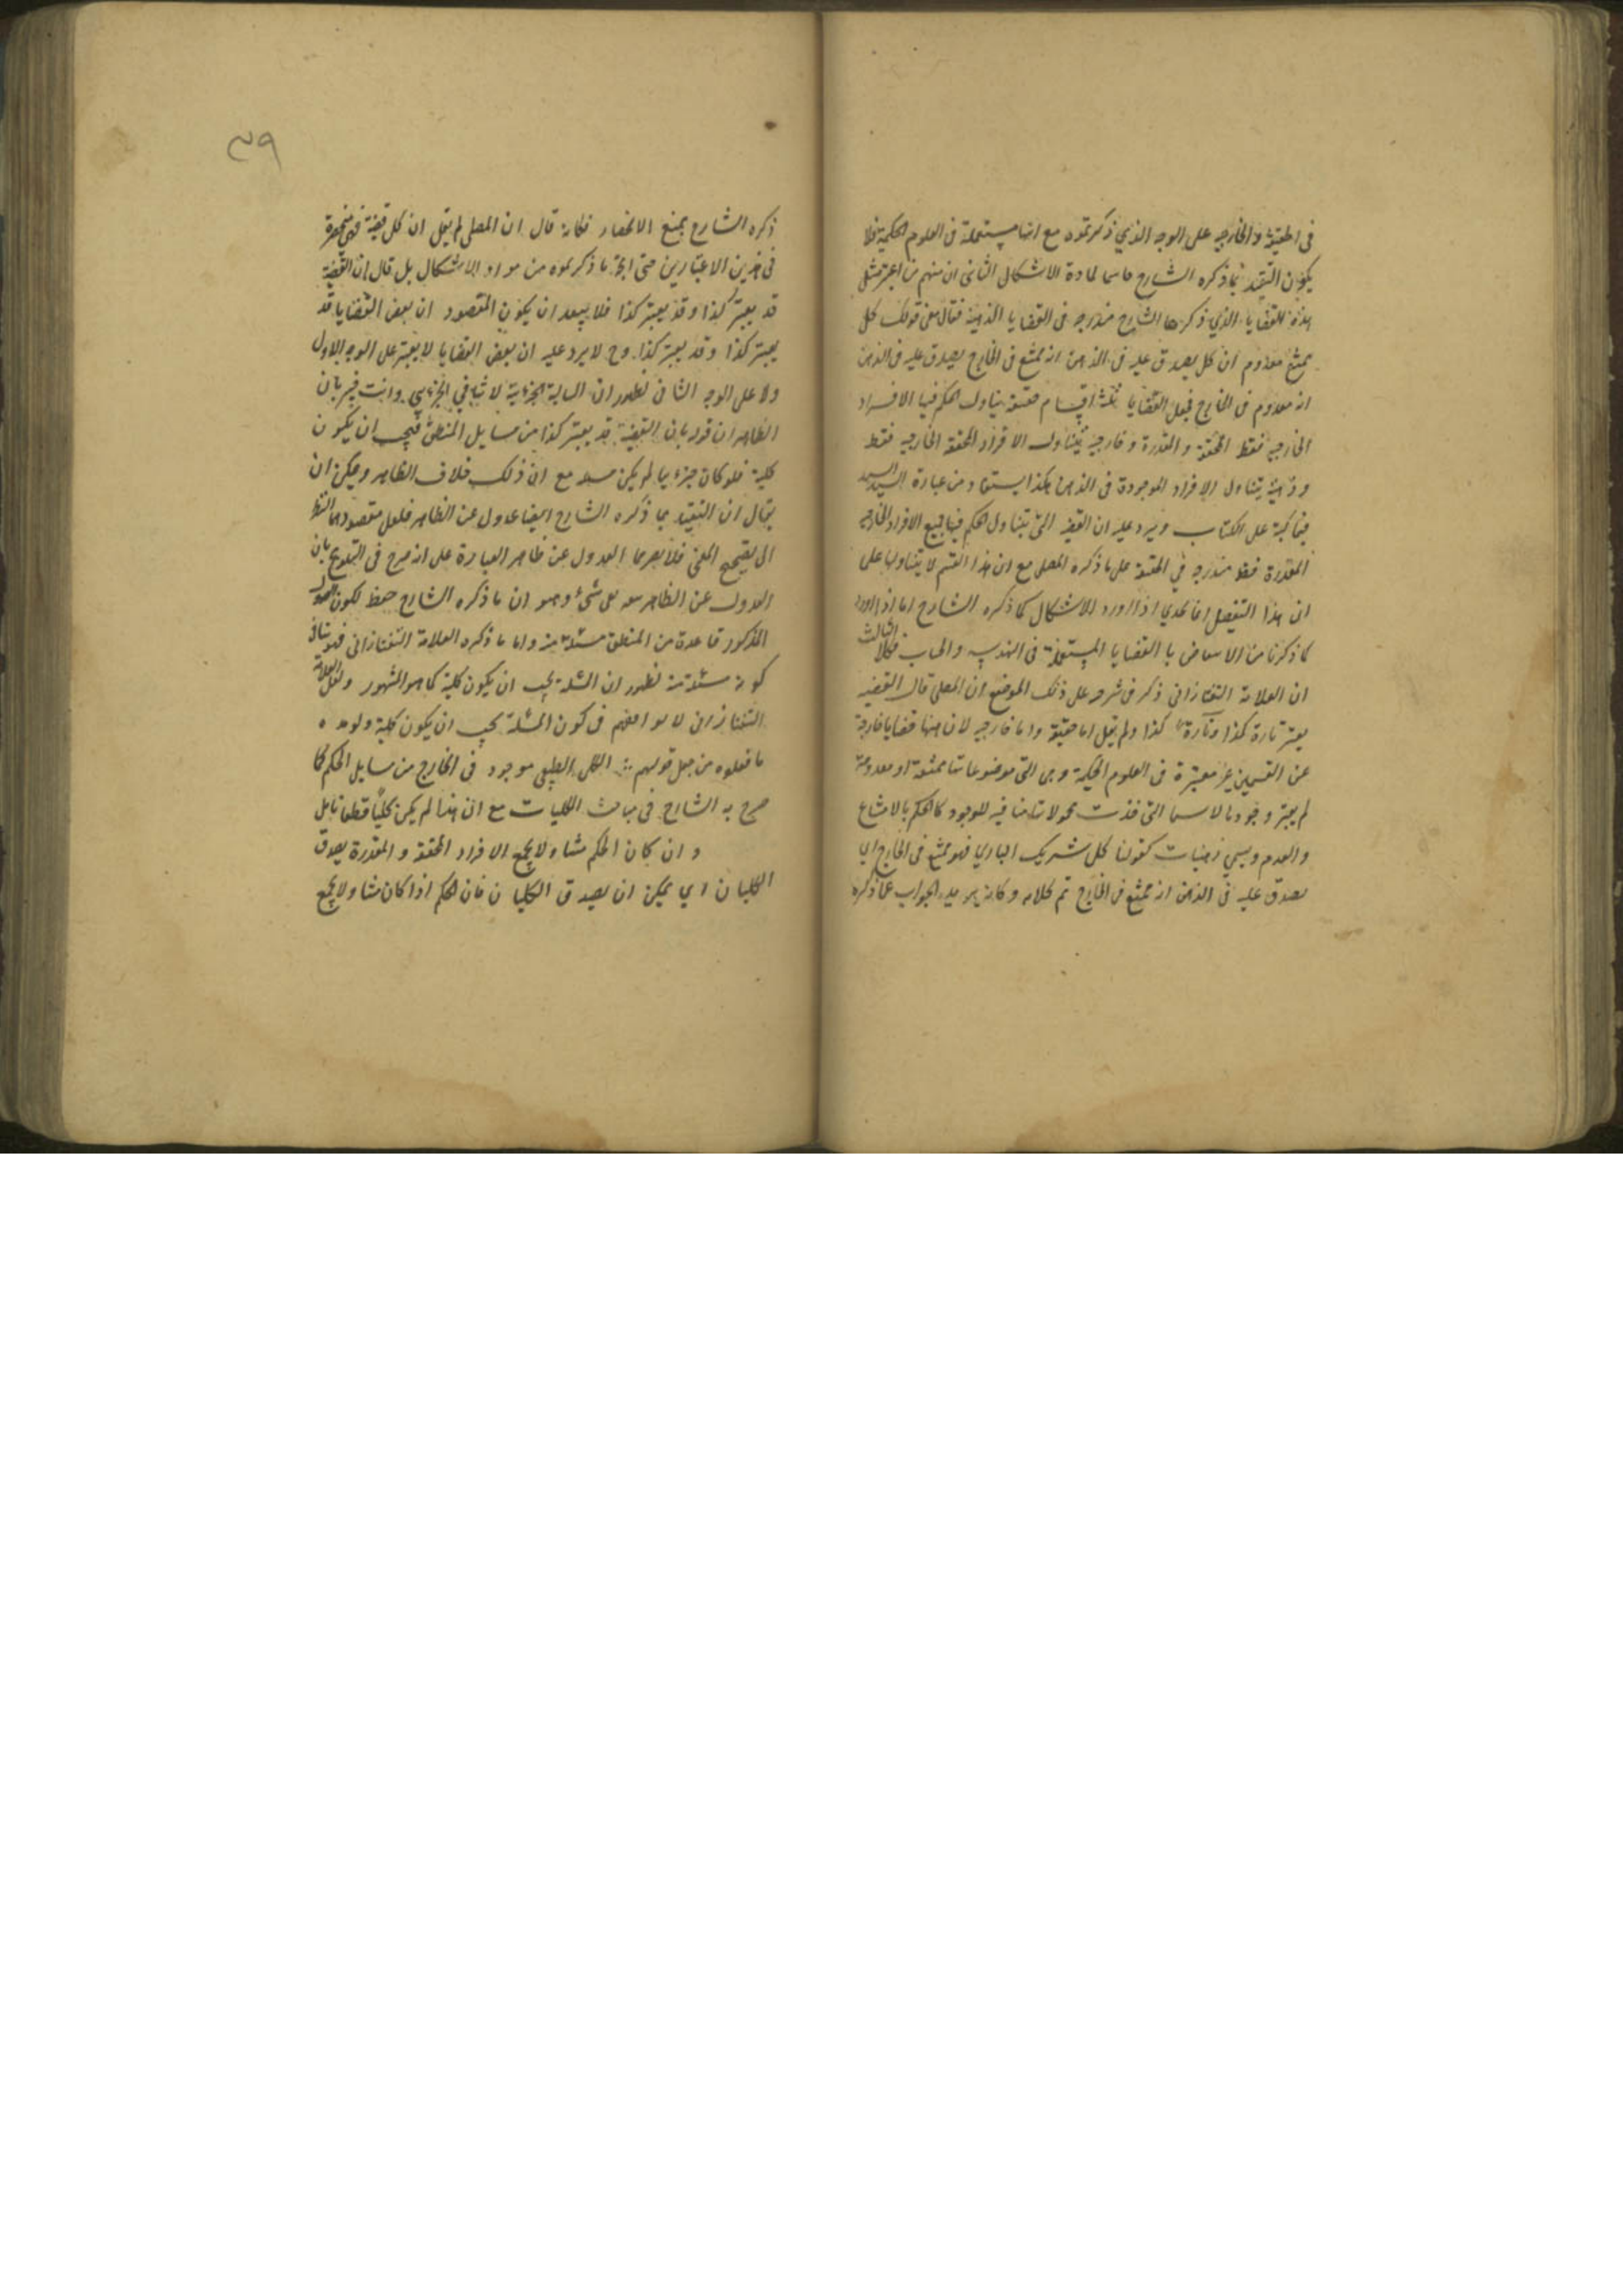 في الحقيقية والخارجية على الوجه الذي ذكرتموه مع انها مستعملة في العلوم الحكمية فلا
يكون التقييد بما ذكره الشارح حاسما لمادة الاشكال الثاني ان منهم من اعتبر مثل
هذه القضايا الذي ذكرها الشارح مندرجه في القضايا الذهنية فقال معنى قولك كل
ممتنع معدوم ان كل يصدق عليه في الذهن انه ممتنع في الخارج يصدق عليه في الذهن
انه معدوم في الخارج فجعل القضايا ثلثة اقسام حقيقية يتناول الحكم فيها الافراد
الخارجية فقط المحققة والمقدرة وخارجية يتناول الافراد المحققة الخارجية فقط
وذهنية يتناول الافراد الموجودة في الذهن هكذا يستفاد من عبارة السيد السند
فيما كتبه على الكتاب ويرد عليه ان القضية التي يتناول الحكم فيها جميع الافراد الخارجية
المقدرة فقط مندرجه في الحقيقة على ما ذكره المصل مع ان هذا القسم لا يتناولها على
ان هذا التفصيل انما يجدي اذا اورد الاشكال كما ذكره الشارح اما اذا اورد
كما ذكرنا من الانتقاض بالقضايا المستعملة في الهندسه والحساب فكلا الثالث
ان العلامة التفتازاني ذكر في شرحه على ذلك الموضع ان المصل قال القضيه
يعتبر تارة كذا وتارة كذا ولم يقل اما حقيقة واما خارجيه لان هنها قضايا خارجة
عن القسمين غير معتبرة في العلوم الحكمية وهي التي موضوعاتها ممتنعة او معدومة
لم يعتبر وجودها لا سيما التي اخذت محمولاتها منافيه للوجود كالحكم بالامتناع
والعدم ويسمي ذهنيات كقولنا كل شريك الباري فهو ممتنع في الخارج اي
يصدق عليه في الذهن انه ممتنع في الخارج تم كلامه وكانه يريد الجواب عما ذكره
٣٩
ذكره الشارح بمنع الانحصار فكانه قال ان المصل لم يقل ان كل قضية فهي منحصرة
في هذين الاعتبارين حتى اتجه ما ذكرتموه من مواد الاشكال بل قال ان القضية
قد يعتبر كذا وقد يعتبر كذا فلا يبعد ان يكون المقصود ان بعض القضايا قد
يعتبر كذا وقد يعتبر كذا وح لا يرد عليه ان بعض القضايا لا يعتبر على الوجه الاول
ولا على الوجه الثاني لظهور ان السالبة الجزئية لا ينافي الجزئي وانت خبير بان
الظاهر ان قوله بان القضية قد يعتبر كذا من مسايل المنطق فيجب ان يكون
كلية فلو كان جزئيا لم يكن مسئلة مع ان ذلك خلاف الظاهر ويمكن ان
يقال ان التقييد بما ذكره الشارح ايضا عدول عن الظاهر فلعل مقصودهما النظر
الى تصحيح المعنى فلا يضرهما العدول عن ظاهر العبارة على انه صرح في التلويح بان
العدول عن الظاهر على شيء وهو ان ما ذكره الشارح حفظ لكون العدول
المذكور قاعدة من المنطق مسئلة منه واما ما ذكره العلامة التفتازاني فهو ينافي
كونه مسئلة منه لظهور ان المسئلة يجب ان يكون كلية كما هو المشهور ولعل العلامة
التفتازاني لا يوافقهم في كون المسئلة يجب ان يكون كلية
ما فعلوه من جعل قولهم الكلي الطبيعي موجود في الخارج من مسايل الحكم كما
صرح به الشارح في مباحث الكليات مع ان هذا لم يكن كليا قطعا تامل
وان كان الحكم شاملا لجميع الافراد المحققة والمقدرة يصدق
الكليتان اي يمكن ان يصدق الكليتان فان الحكم اذا كان شاملا لجميع